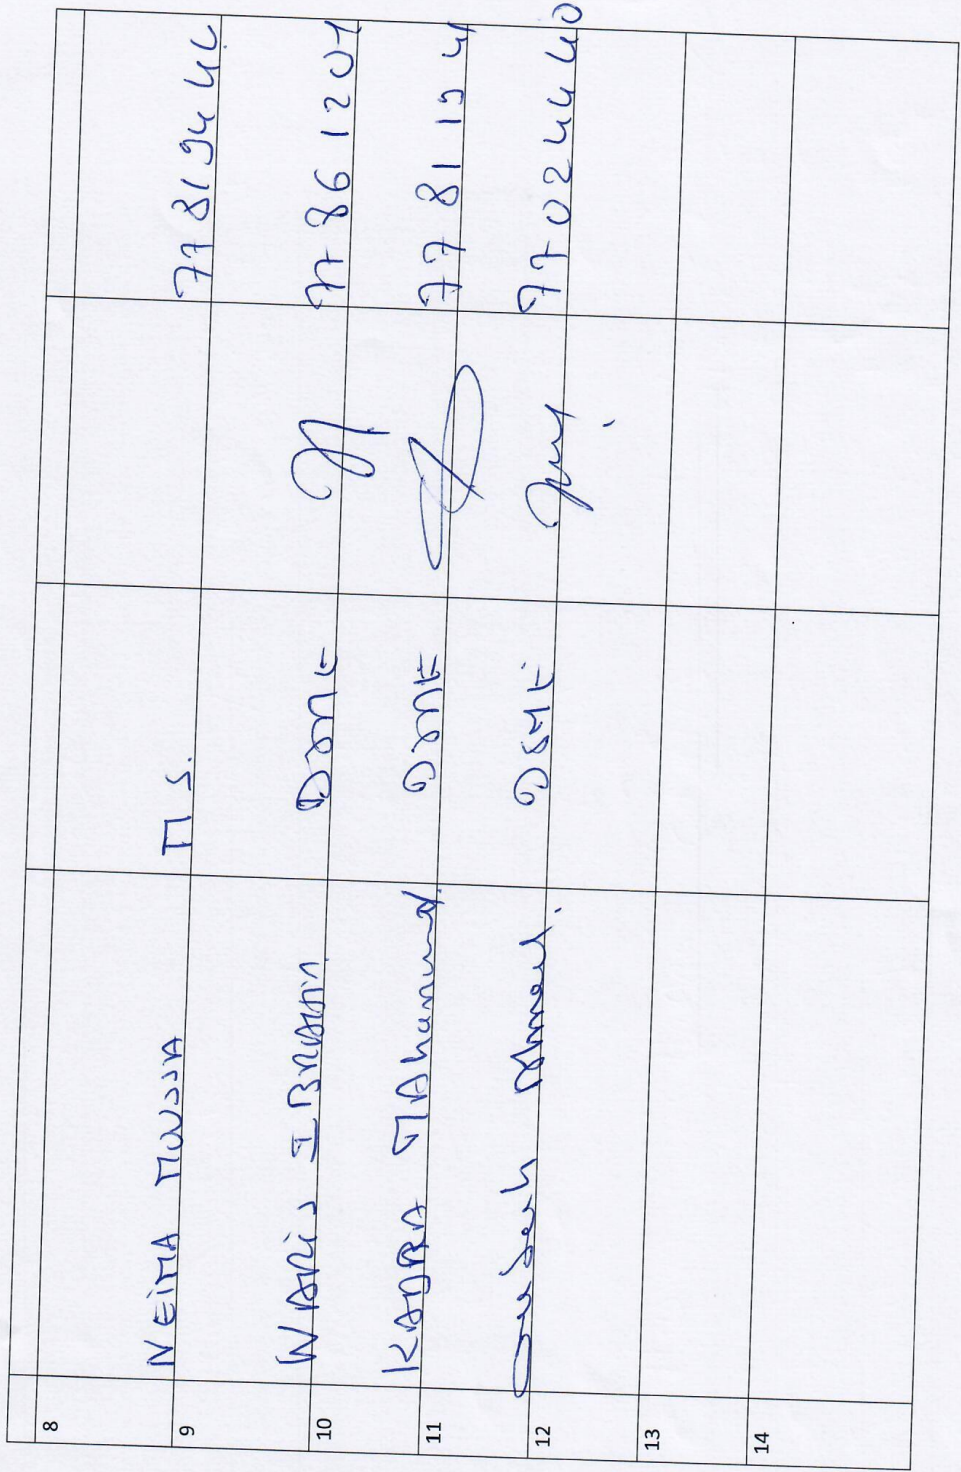 8
NEIMA MOUSSA M S. 77 81 94 44
9
WARIS IBRAHIM DSME 77 86 12 07
10
KADRA MAhamud. DSME 77 81 19 4
11
Ahmed. DSME 77 02 44 40
12
13
14